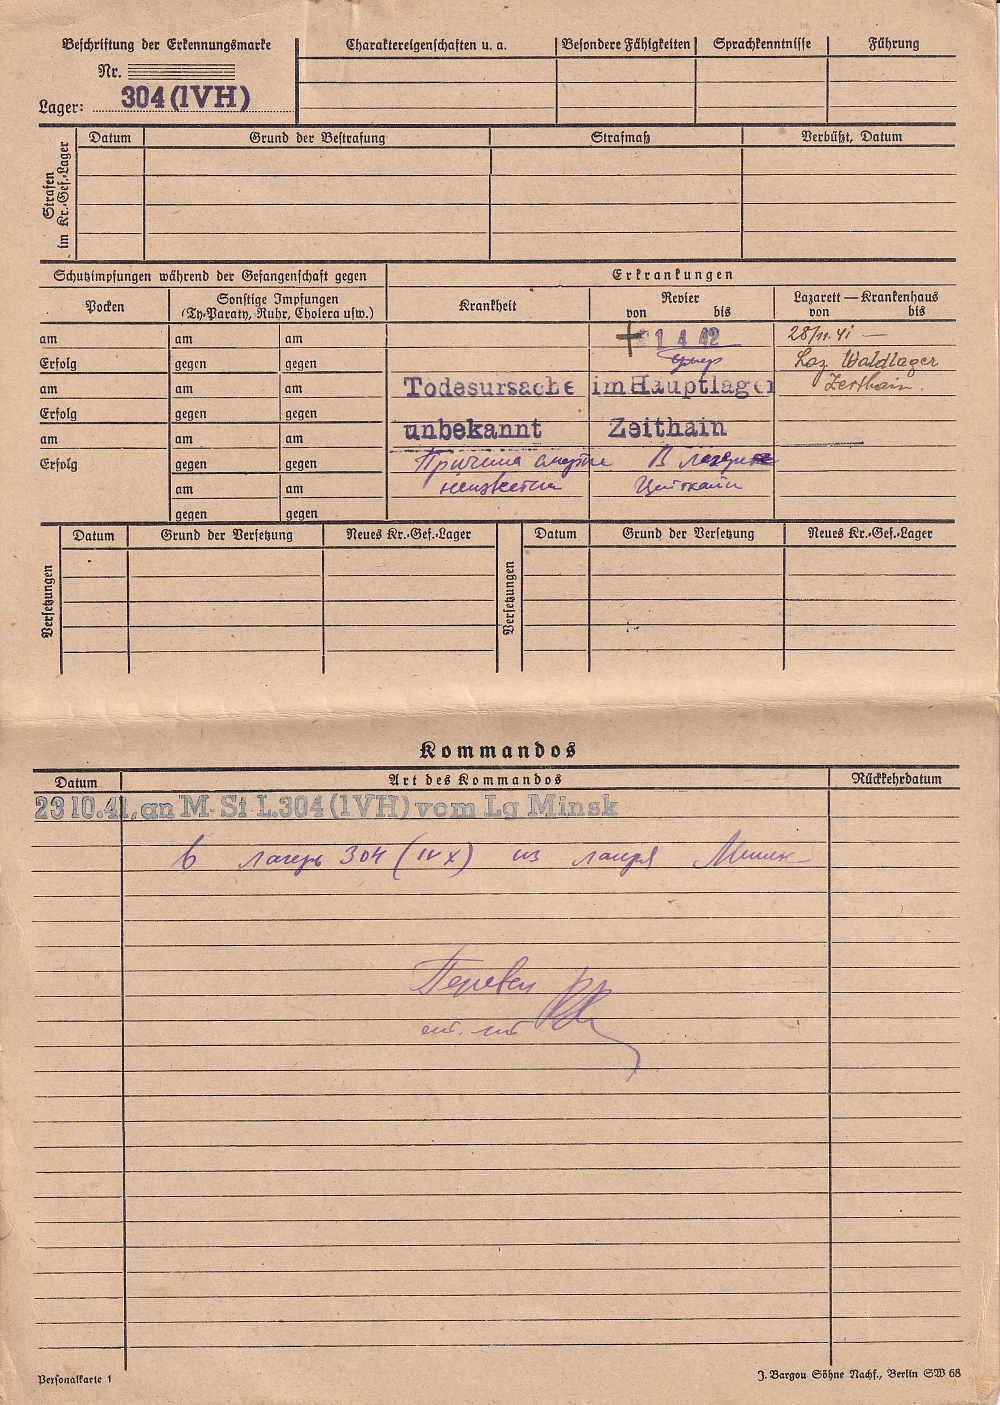 Beschriftung der Erkennungsmarke
Nr.
Lager: 304 (IVH)
Charaktereigenschaften u. a.
Besondere Fähigkeiten
Sprachkenntnisse
Führung
Strafen im Kr.-Gef.-Lager
Datum
Grund der Bestrafung
Strafmaß
Verbüßt, Datum
Schutzimpfungen während der Gefangenschaft gegen
Erkrankungen
Pocken
Sonstige Impfungen
(Ty-Paraty, Ruhr, Cholera usw.)
Krankheit
Revier
von bis
Lazarett — Krankenhaus
von bis
am am am
Erfolg gegen gegen
am am am
Erfolg gegen gegen
am am am
Erfolg gegen gegen
am am
gegen gegen
1 4 42
умер
28/11. 41 —
Laz. Waldlager
Zeithain.
Todesursache im Hauptlager
unbekannt Zeithain
Причина смерти В лагере
неизвестна Цейтхайн
Versetzungen
Datum Grund der Versetzung Neues Kr.-Gef.-Lager
Versetzungen
Datum Grund der Versetzung Neues Kr.-Gef.-Lager
Kommandos
Datum Art des Kommandos Rückkehrdatum
23 10. 41, an M-St L.304 (IVH) vom Lg Minsk
в лагерь 304 (IV X) из лагеря Минск
Перевел
Personalkarte 1
J. Bargou Söhne Nachf., Berlin SW 68